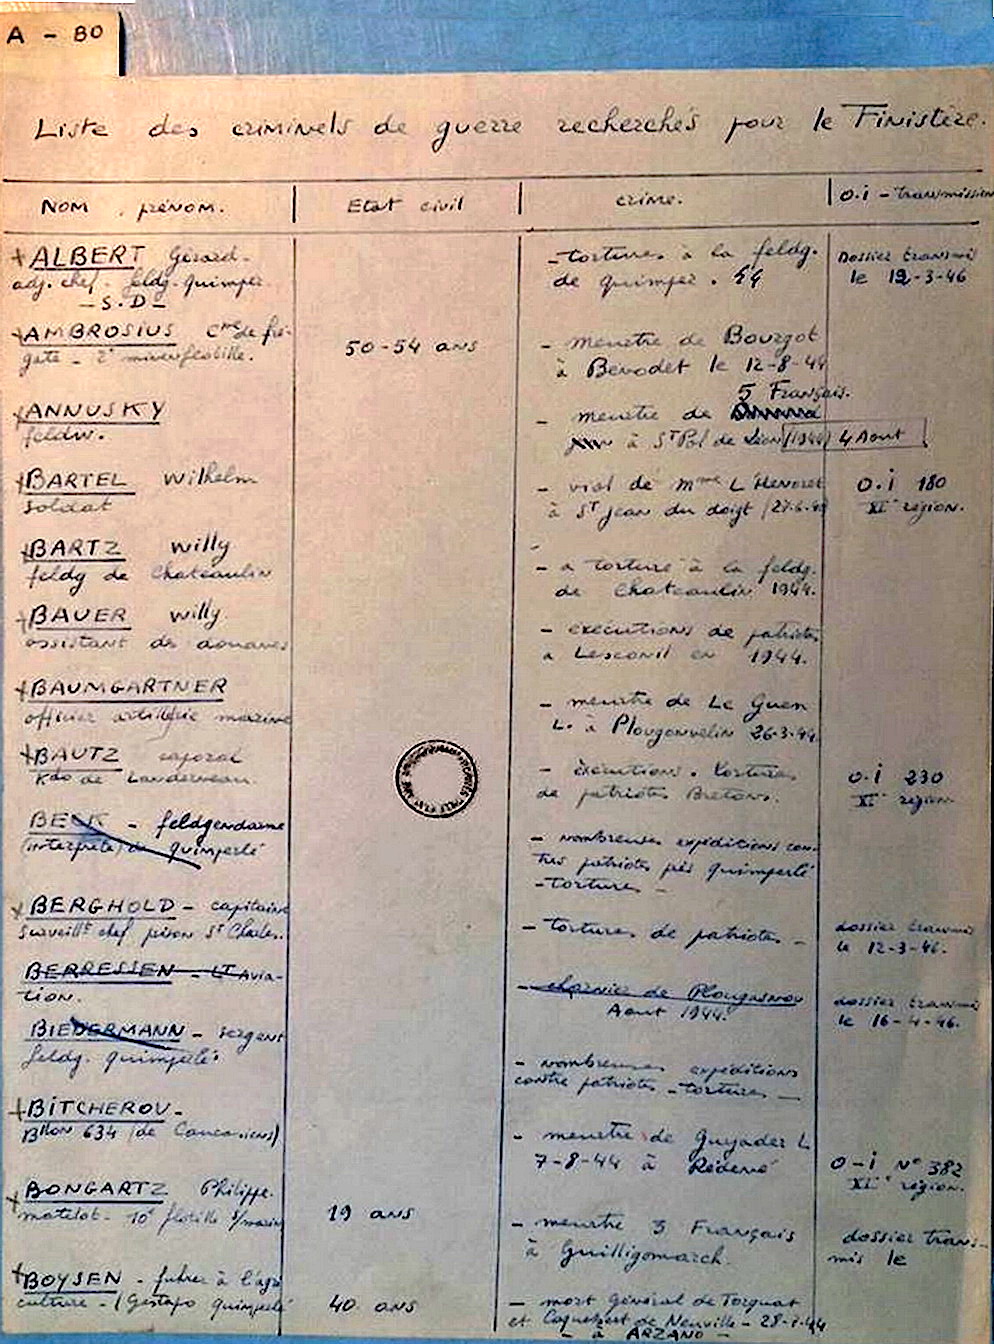 A - 80
Liste des criminels de guerre recherchés pour le Finistère.
NOM . prénom. Etat civil crime. O.i - transmission
+ ALBERT Gérard - - tortures à la feldg. Dossier transmis
adj. chef. feldg. quimper. de quimper . 44 le 12-3-46
- S.D -
+ AMBROSIUS Cne de fré- - meurtre de Bourgot
gate - 2e 50-54 ans à Benodet le 12-8-44
5 Français.
+ ANNUSKY - meurtre de
feldw. à St Pol de Léon (1944) 4 Aout
+ BARTEL Wilhelm - viol de Mme L'Henoret O.i 180
soldat à St Jean du doigt XIe région.
+ BARTZ Willy - a torturé à la feldg.
feldg de Chateaulin de Chateaulin 1944.
+ BAUER Willy - exécutions de patriotes
assistant des douanes à Lesconil en 1944.
+ BAUMGARTNER - meurtre de Le Guen
officier artillerie marine L. à Plougonvelin 26-3-44.
+ BAUTZ caporal - exécutions. tortures O.i 230
Kdo de Landerneau. de patriotes Bretons. XIe région
BECK - feldgendarme - nombreuses expéditions con-
(interprète) de quimperlé tres patriotes près quimperlé
- tortures -
+ BERGHOLD - capitaine - tortures de patriotes - dossier transmis
surveillt chef prison St Charles. le 12-3-46.
BERRESSEN - LT Avia- - charnier de Plougasnou dossier transmis
tion. Aout 1944. le 16-4-46.
BIEDERMANN - sergent - nombreuses expéditions
feldg. quimperlé contre patriotes - tortures -
+ BITCHEROV - - meurtre de Guyader L
Bllon 634 (de Caucasiens) 7-8-44 à Rédené O-i N° 382
XIe région.
+ BONGARTZ Philippe. - meurtre 3 Français dossier trans-
matelot - 10e flotille s/marins 19 ans à Guilligomarch. mis le
+ BOYSEN - fuhrer à l'agri - mort Général de Torquat
culture - (Gestapo quimperlé 40 ans et Coquebert de Neuville - 28-7-44
- à ARZANO -